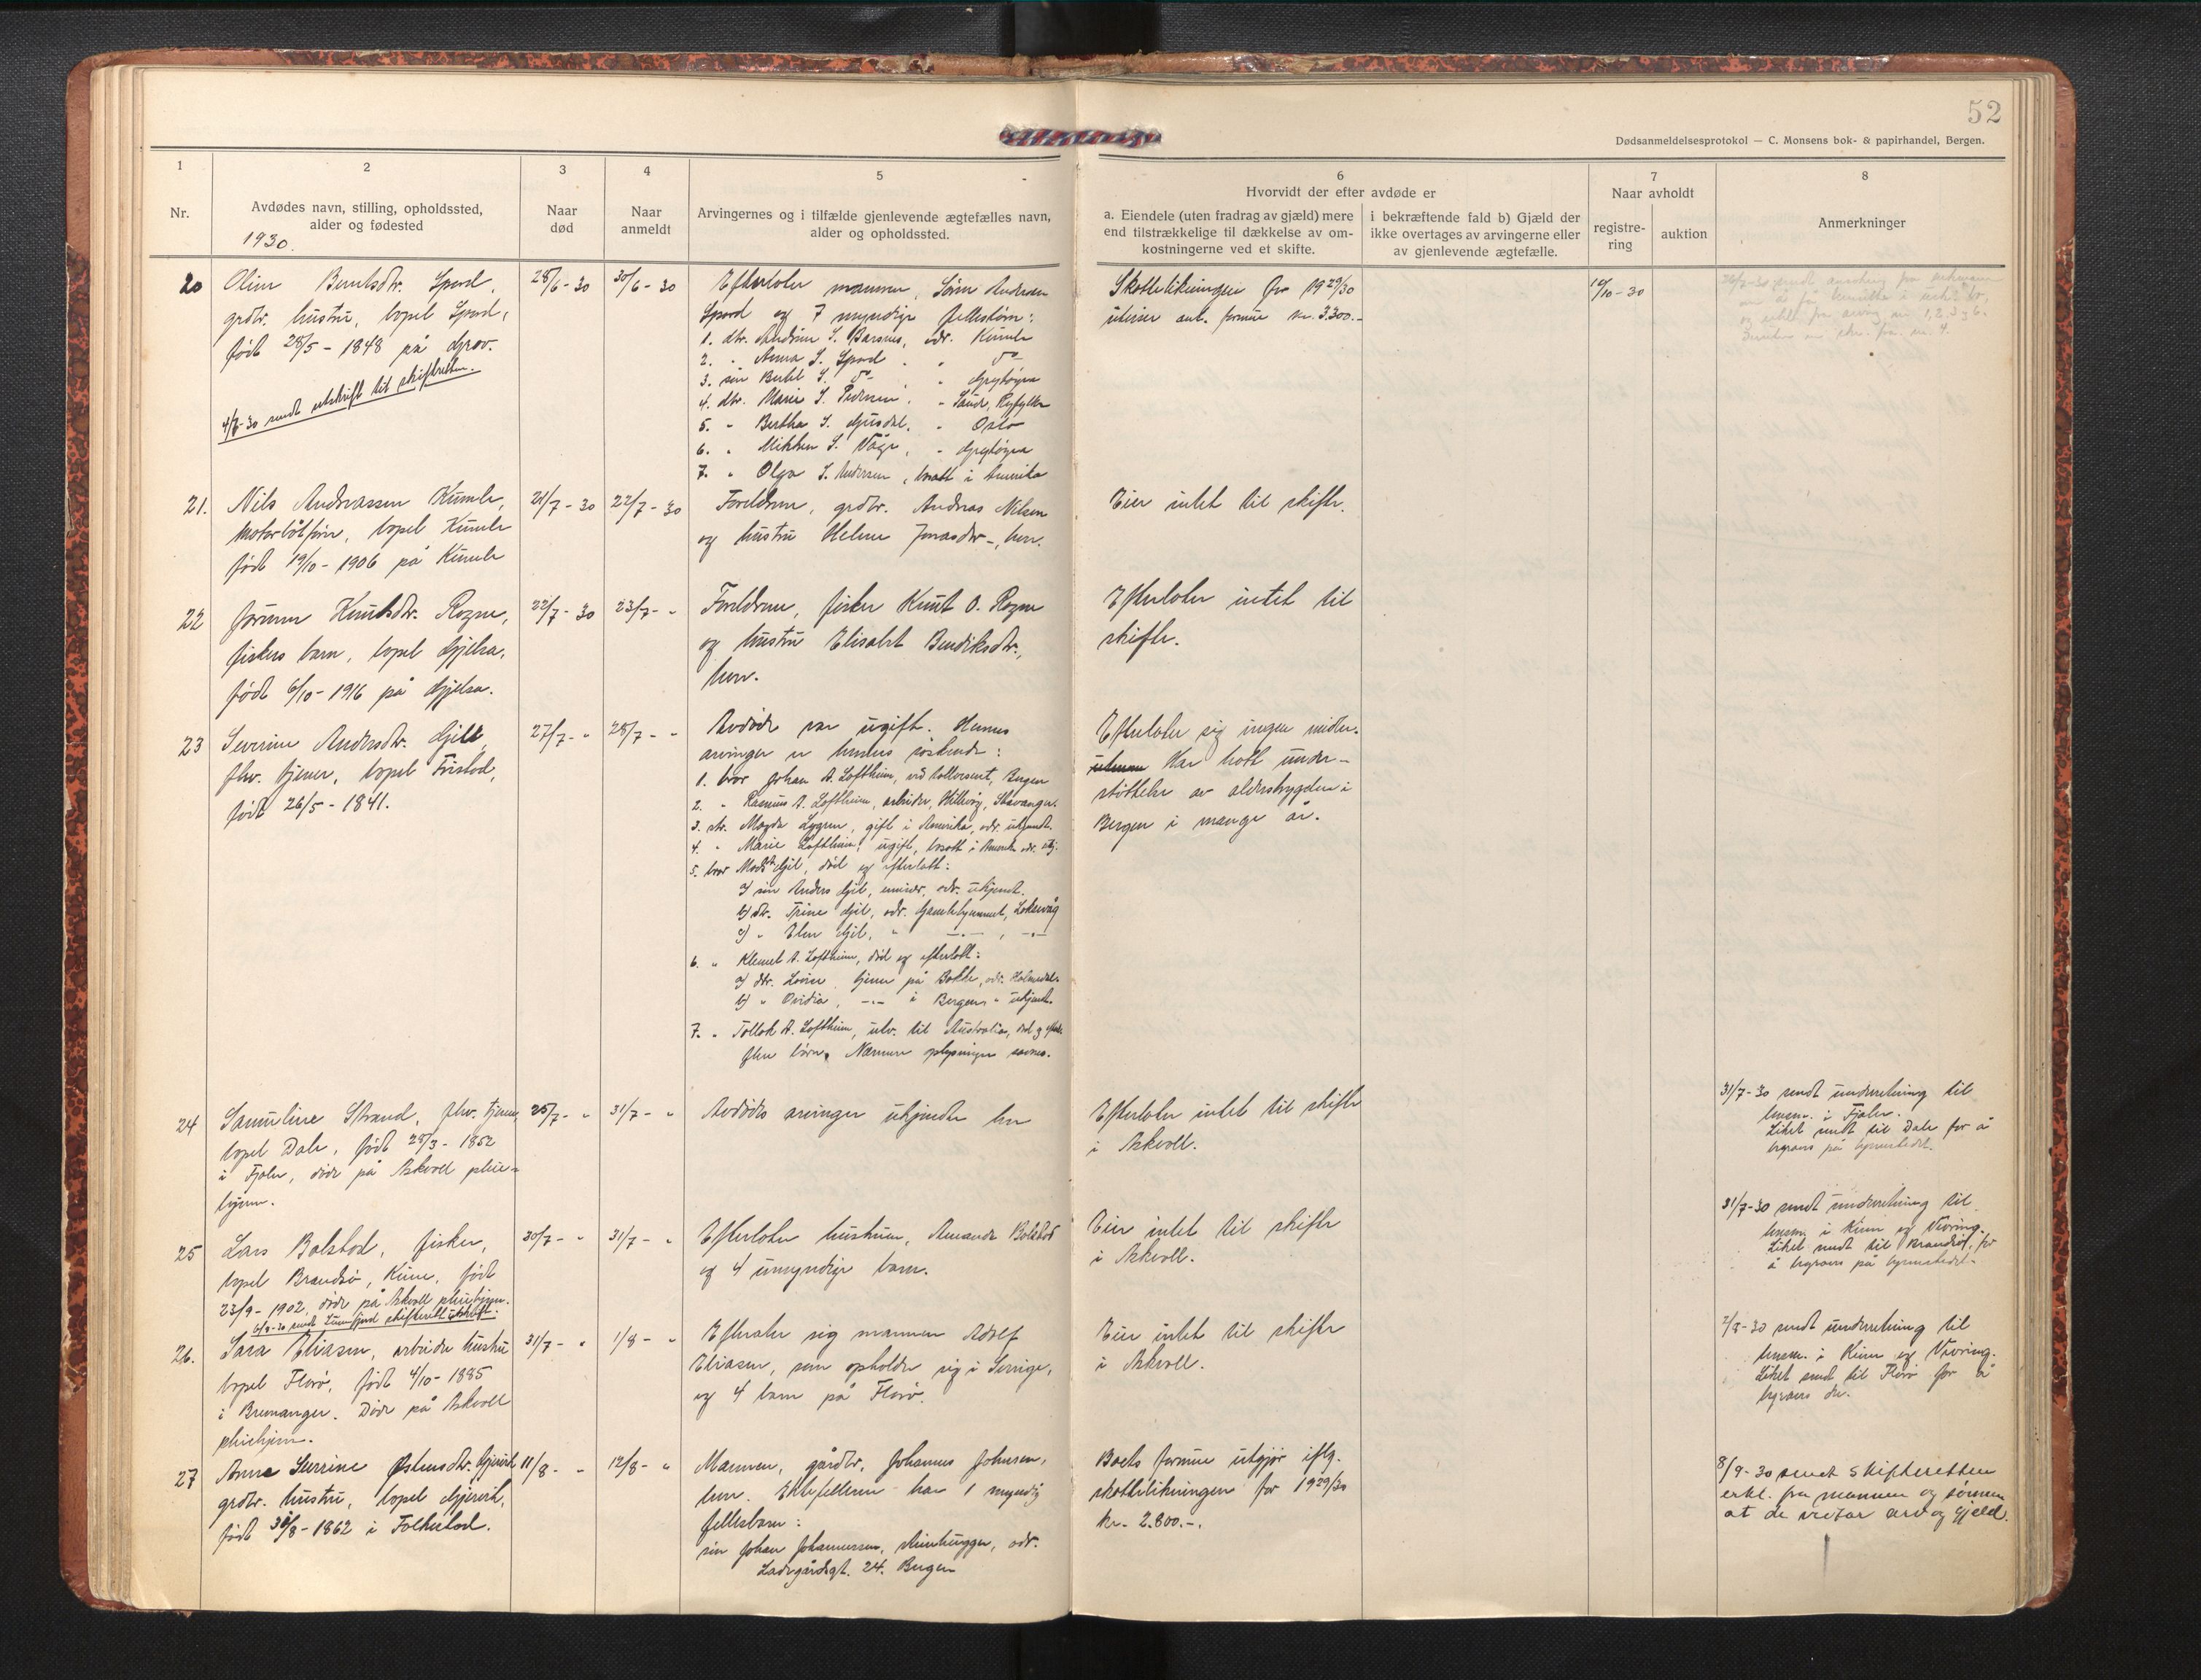 52
Dødsanmeldelsesprotokol — C. Monsens bok- & papirhandel, Bergen.
1
Nr.
2
Avdødes navn, stilling, opholdssted,
alder og fødested
1930.
3
Naar
død
4
Naar
anmeldt
5
Arvingernes og i tilfælde gjenlevende ægtefælles navn,
alder og opholdssted.
6
Hvorvidt der efter avdøde er
a. Eiendele (uten fradrag av gjæld) mere
end tilstrækkelige til dækkelse av om-
kostningerne ved et skifte.
i bekræftende fald b) Gjæld der
ikke overtages av arvingerne eller
av gjenlevende ægtefælle.
7
Naar avholdt
registre-
ring
auktion
8
Anmerkninger
20
Oline Berntsdtr.
grdbr. hustru, bopel
født 28/5 - 1848 på
4/7-30 sendt utskrift til skifteretten.
28/6 - 30
30/6 - 30
Efterlater mannen, Søren Andersen
og 7 myndige fellesbørn:
1. dtr. Andrine S. adr. Kumle
2. " Anna S.
3. søn Bertel S.
4. dtr. Marie S. Pedersen, " Saude, Ryfylke
5. " Bertha S. " Oslo
6. " Mikkeline S. Våge, "
7. " Olga S. Andersen, bosatt i Amerika
Skattelikningen for 1929/30
utviser ant. formue kr. 3.300.-
10/10 - 30
21.
Nils Andreassen Kumle,
motorbåtfører, bopel Kumle
født 19/10 - 1906 på Kumle
21/7 - 30
22/7 - 30
Foreldrene, grdbr. Andreas Nilsen
og hustru Helene Jonasdtr -, her.
Eier intet til skifte.
22
Jørunn Knutsdtr. Rozne,
fiskers barn, bopel Gjelsa,
født 6/10 - 1916 på Gjelsa.
22/7 - 30
23/7 - "
Foreldrene, fisker Knut O. Rozne
og hustru Elisabet Bendiksdtr.,
her.
Efterlater intet til
skifte.
23
Severine Andersdtr. Gjil
fhv. tjener, bopel
født 26/5 - 1841.
27/7 - "
28/7 - "
Avdøde var ugift. Hennes
arvinger er hennes søskende:
1. bror Johan A. Loftheim, ved tollvesenet, Bergen
2. " Rasmus A. Loftheim, arbeider, Hillevåg, Stavanger.
3. str. Magda Lygren, gift i Amerika, adr. ukjendt.
4. " Marie Loftheim, ugift, bosatt i Amerika adr. ukj.
5. bror Mads Gjil, død og efterlatt:
a) søn Anders Gjil, adr. ukjendt.
b) dtr. Trine Gjil, adr. Gamlehjemmet,
c) " Elen Gjil, " —"— , —"—
6. " Klemet A. Loftheim, død og efterlatt:
a) dtr. Lovise, tjener på adr. Holmedal
b) " Ovidia, —"— i Bergen, " ukjendt.
7. " Tollak A. Loftheim, utv. til Australia, død og efterl.
flere børn. Nærmere oplysninger savnes.
Efterlater sig ingen midler.
Har hatt under-
støttelse av alderstrygden i
Bergen i mange år.
24
Samueline Strand, fhv. tjener,
bopel Dale, født 28/3 - 1852
i Fjaler, døde på Askvoll pleie-
hjem.
25/7 - "
31/7 - "
Avdødes arvinger ukjendte her
Efterlater intet til skifte
i Askvoll.
31/7-30 sendt underretning til
lensm. i Fjaler.
Liket sendt til Dale for å
begraves på hjemstedet.
25
Lars Bolstad, fisker,
bopel Brandsø, Kinn, født
23/9 - 1902, døde på Askvoll pleiehjem.
6/8-30 sendt Sunnfjord skifterett utskrift.
30/7 - "
31/7 - "
Efterlater hustruen, Amanda Bolstad
og 4 umyndige barn.
Eier intet til skifte
i Askvoll.
31/7-30 sendt underretning til
lensm. i Kinn og Vevring.
Liket sendt til Brandsø, for
å begraves på hjemstedet.
26.
Sara Eliasen, arbeider hustru
bopel Florø, født 4/10 - 1885
i Bremanger. Døde på Askvoll
pleiehjem.
31/7 - "
1/8 - "
Efterlater sig mannen Adolf
Eliasen, som opholder sig i Sverige,
og 4 barn på Florø.
Eier intet til skifte
i Askvoll.
2/8-30 sendt underretning til
lensm. i Kinn og Vevring.
Liket sendt til Florø for å
begraves der.
27
Anne Severine Østensdtr.
grdbr. hustru, bopel
født 30/8 - 1862 i Folkestad.
11/8 - "
12/8 - "
Mannen, gårdbr. Johannes Johnsen,
her. Ektefellene har 1 myndig
fellesbarn:
søn Johan Johannessen, steinhugger, adr.
Ladegårdsgt. 24. Bergen
Boets formue utgjør iflg.
skattelikningen for 1929/30
kr. 2.800.-.
8/9-30 sendt skifteretten
erkl. fra mannen og sønnen
at de vedtar arv og gjeld.